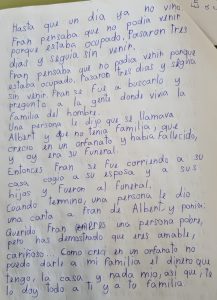 Hasta que un día ya no vino
Fran pensaba que no podía venir
porque estaba ocupado. Pasaron tres
días y seguía sin venir.
Fran pensaba que no podía venir porque
estaba ocupado. Pasaron tres días y seguía
sin venir Fran se fue a buscarlo y
pregunto a la gente donde vivía la
familia del hombre.
Una persona le dijo que se llamava
Albert y que no tenía familia, que
crecio en un orfanato y había fallecido,
y oy era su funeral.
Entonces Fran se fue corriendo a su
casa cogio a su esposa y a sus
hijos y fueron al funeral.
Cuando termino, una persona le dio
una carta a Fran de Albert y ponía:
Querido Fran una persona pobre,
pero has demostrado que eres amable,
cariñoso. Como crecí en un orfanato no
puedo darle a mi familia el dinero que
tengo, la casa y nada mio, así que te
lo doy todo a ti y a tu familia.